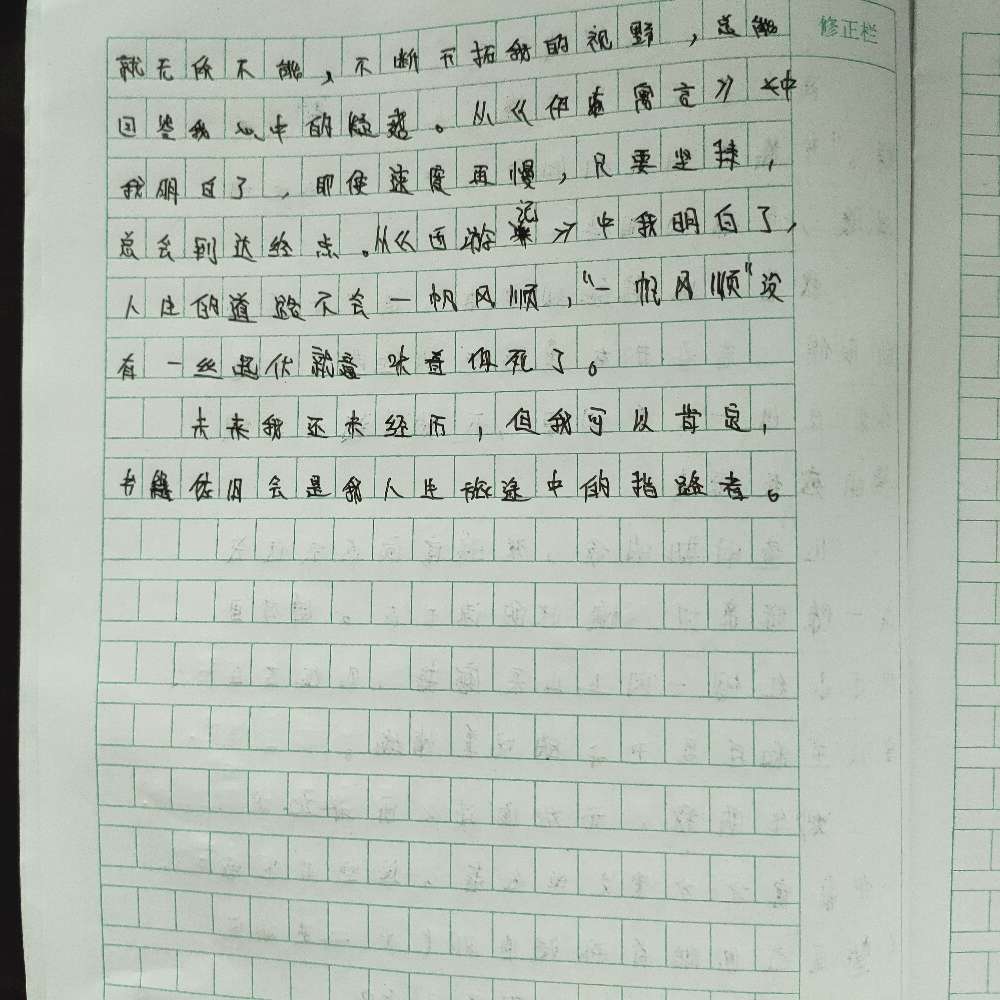 修正栏
就无所不能，不断开拓我的视野，总能
回答我心中的疑惑。从《伊索寓言》中
我明白了，即使速度再慢，只要坚持，
总会到达终点。从《西游记》中我明白了，
人生的道路不会一帆风顺，“一帆风顺”没
有一丝起伏就意味着你死了。
未来我还未经历，但我可以肯定，
书籍依旧会是我人生旅途中的指路者。